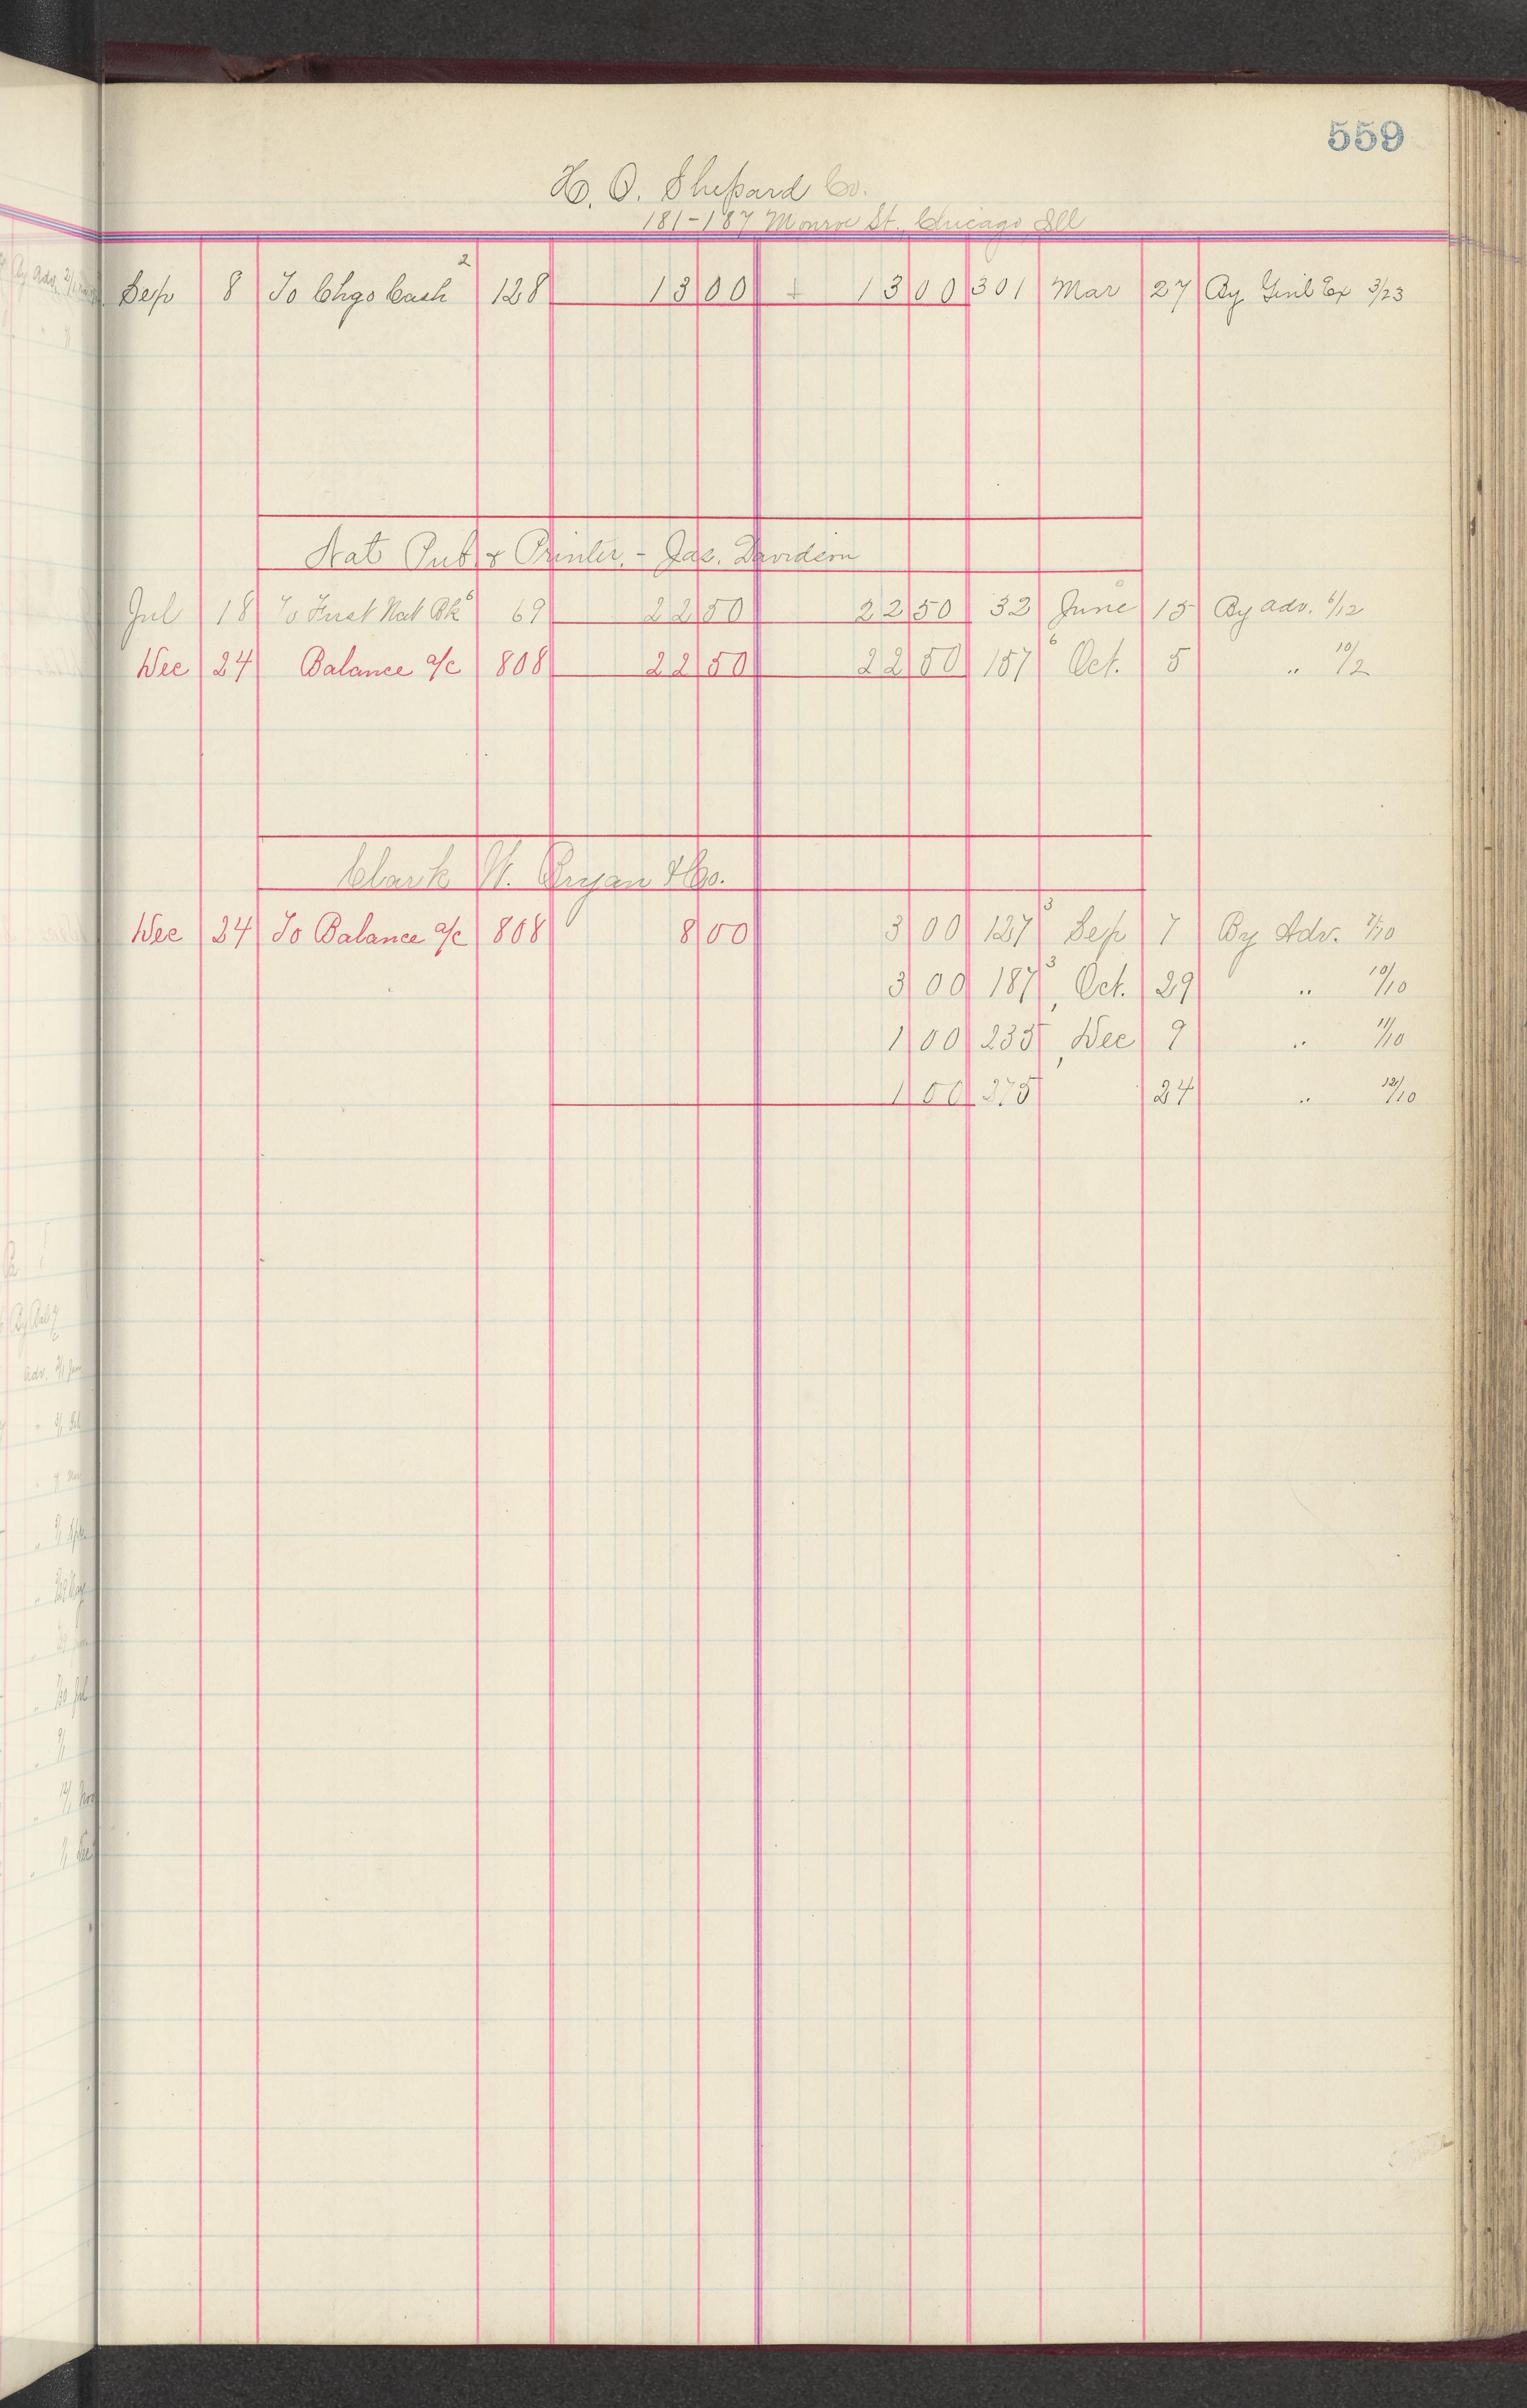 559
H. O. Shepard Co.
181-187 Monroe St., Chicago Ill
Sep 8 To Chgo Cash 2 128 13 00 13 00 301 Mar 27 By Genl Ex 3/23
Nat Pub & Printer. - Jas. Davidson
Jul 18 To First Nat Bk 6 69 22 50 22 50 32 June 15 By adv. 6/12
Dec 24 Balance a/c 808 22 50 22 50 157 6 Oct. 5 " 10/2
Clark W. Bryan & Co.
Dec 24 To Balance a/c 808 8 00 3 00 127 3 Sep 7 By Adv. 7/10
3 00 187 3 Oct. 29 " 10/10
1 00 235 Dec 9 " 11/10
1 00 275 24 " 12/10